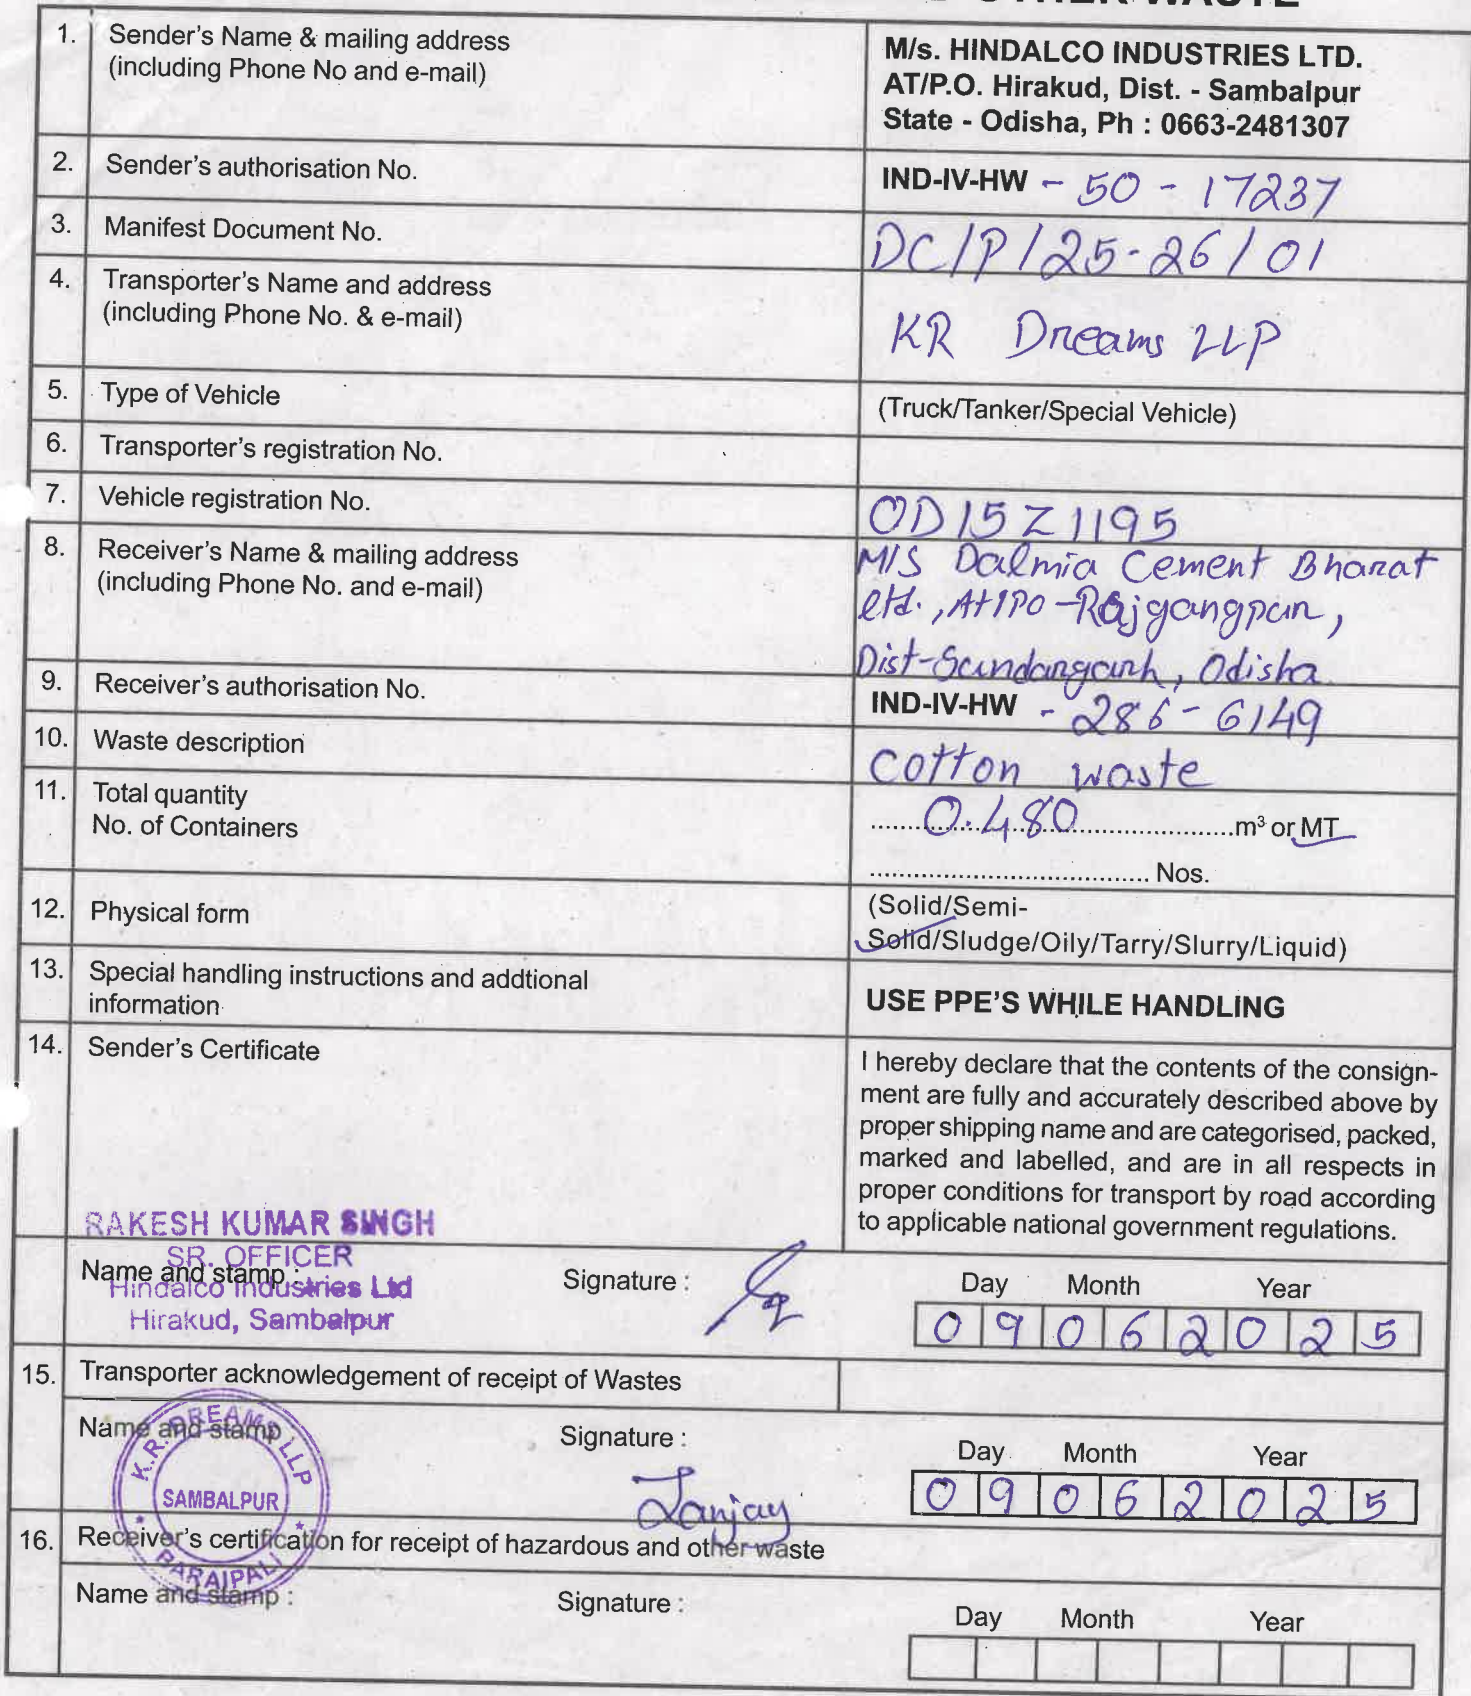 OTHER WASTE
1. Sender's Name & mailing address
(including Phone No and e-mail)
M/s. HINDALCO INDUSTRIES LTD.
AT/P.O. Hirakud, Dist. - Sambalpur
State - Odisha, Ph : 0663-2481307
2. Sender's authorisation No.
IND-IV-HW - 50 - 17237
3. Manifest Document No.
DC/P/25-26/01
4. Transporter's Name and address
(including Phone No. & e-mail)
KR Dreams LLP
5. Type of Vehicle
(Truck/Tanker/Special Vehicle)
6. Transporter's registration No.
7. Vehicle registration No.
OD15Z1195
8. Receiver's Name & mailing address
(including Phone No. and e-mail)
M/S Dalmia Cement Bharat
ltd., At/PO-Rajgangpur,
Dist-Sundargarh, Odisha
9. Receiver's authorisation No.
IND-IV-HW - 286 - 6149
10. Waste description
Cotton waste
11. Total quantity
No. of Containers
0.480 m³ or MT
Nos.
12. Physical form
(Solid/Semi-
Solid/Sludge/Oily/Tarry/Slurry/Liquid)
13. Special handling instructions and addtional
information
USE PPE'S WHILE HANDLING
14. Sender's Certificate
I hereby declare that the contents of the consign-
ment are fully and accurately described above by
proper shipping name and are categorised, packed,
marked and labelled, and are in all respects in
proper conditions for transport by road according
to applicable national government regulations.
RAKESH KUMAR SINGH
SR. OFFICER
Name and stamp :
Hindalco Industries Ltd
Hirakud, Sambalpur
Signature :
Day Month Year
0 9 0 6 2 0 2 5
15. Transporter acknowledgement of receipt of Wastes
Name and stamp :
K.R. DREAMS LLP
SAMBALPUR
BARAIPALI
Signature :
Sanjay
Day Month Year
0 9 0 6 2 0 2 5
16. Receiver's certification for receipt of hazardous and other waste
Name and stamp :
Signature :
Day Month Year